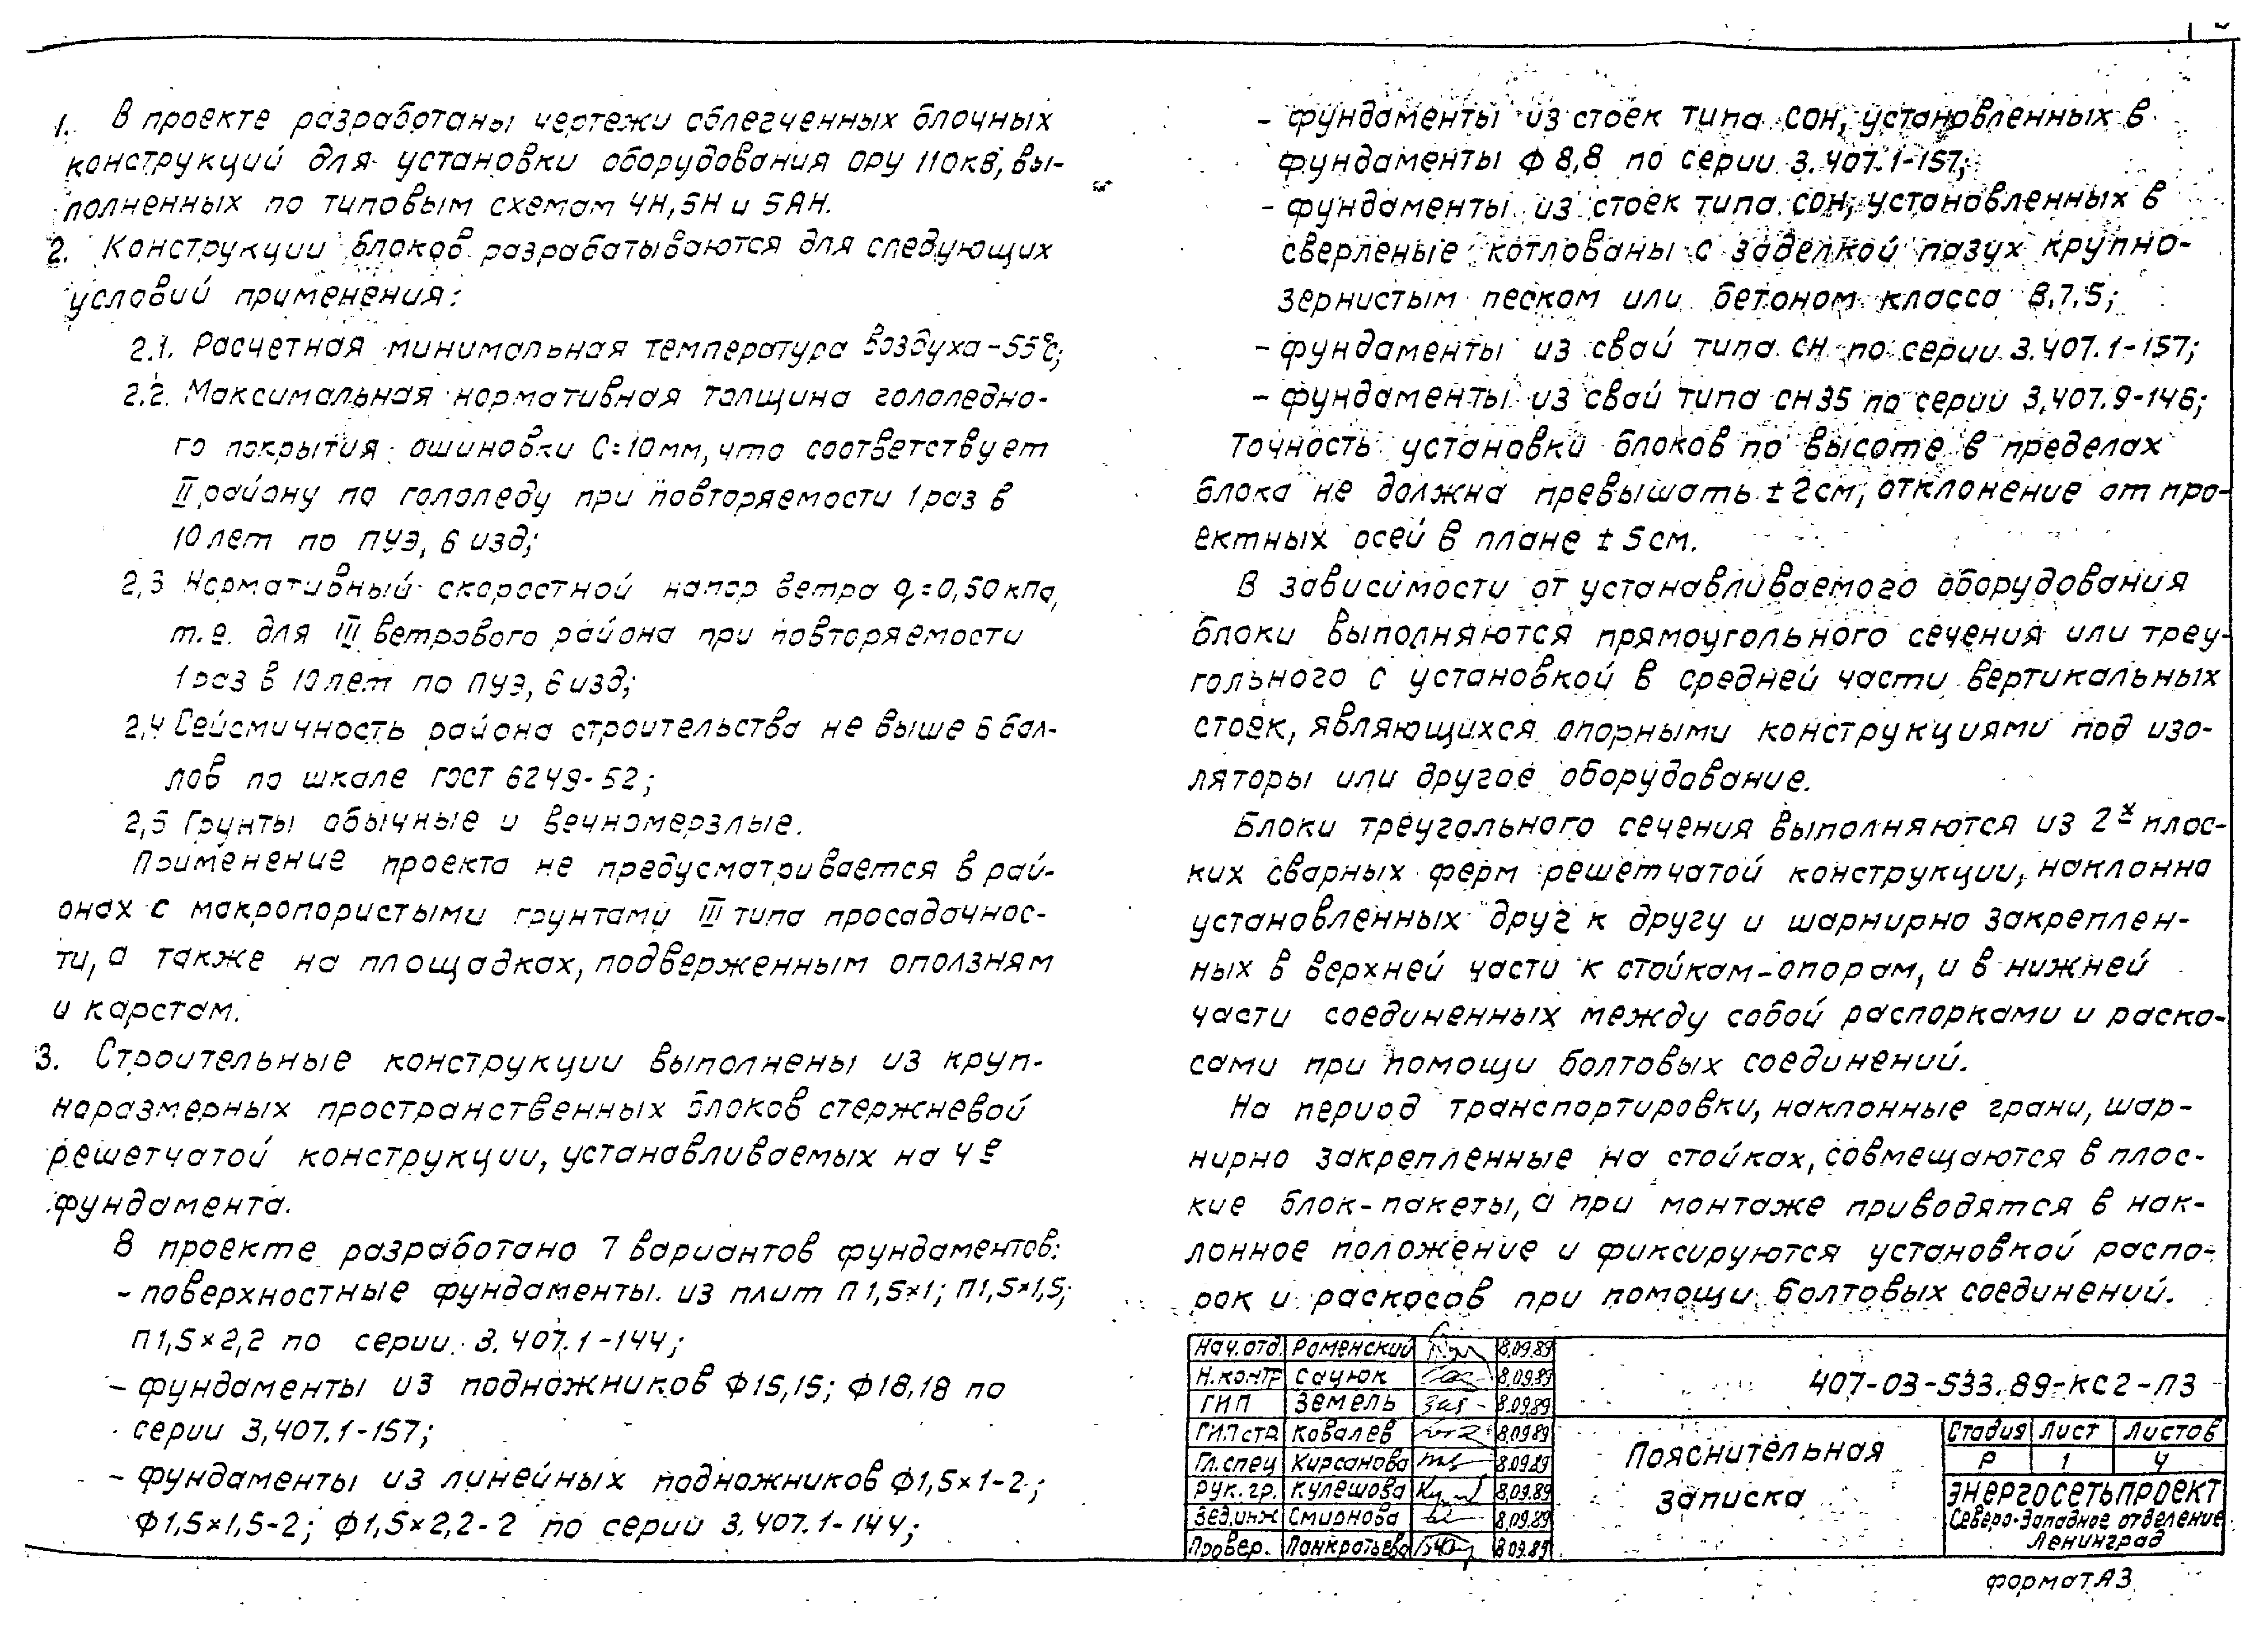 1. В проекте разработаны чертежи облегченных блочных
конструкций для установки оборудования ОРУ 110кВ, вы-
полненных по типовым схемам 4Н, 5Н и 5АН.
2. Конструкции блоков разрабатываются для следующих
условий применения:
2.1. Расчетная минимальная температура воздуха -55°С;
2.2. Максимальная нормативная толщина гололедно-
го покрытия ошиновки С=10мм, что соответствует
II району по гололеду при повторяемости 1 раз в
10 лет по ПУЭ, 6 изд;
2,3 Нормативный скоростной напор ветра q=0,50 кПа,
т.е. для III ветрового района при повторяемости
1 раз в 10 лет по ПУЭ, 6 изд;
2,4 Сейсмичность района строительства не выше 6 бал-
лов по шкале ГОСТ 6249-52;
2,5 Грунты обычные и вечномерзлые.
Применение проекта не предусматривается в рай-
онах с макропористыми грунтами III типа просадочнос-
ти, а также на площадках, подверженным оползням
и карстам.
3. Строительные конструкции выполнены из круп-
норазмерных пространственных блоков стержневой
решетчатой конструкции, устанавливаемых на 4е
фундамента.
В проекте разработано 7 вариантов фундаментов:
- поверхностные фундаменты из плит П1,5×1; П1,5×1,5;
П1,5×2,2 по серии 3.407.1-144;
- фундаменты из подножников Ф15,15; Ф18,18 по
серии 3,407.1-157;
- фундаменты из линейных подножников Ф1,5×1-2;
Ф1,5×1,5-2; Ф1,5×2,2-2 по серии 3.407.1-144;
- фундаменты из стоек типа СОН, установленных в
фундаменты Ф 8,8 по серии 3.407.1-157;
- фундаменты из стоек типа СОН, установленных в
сверленые котлованы с заделкой пазух крупно-
зернистым песком или бетоном класса В,7,5;
- фундаменты из свай типа СН по серии 3.407.1-157;
- фундаменты из свай типа СН35 по серии 3,407.9-146;
Точность установки блоков по высоте в пределах
блока не должна превышать ±2см, отклонение от про-
ектных осей в плане ±5см.
В зависимости от устанавливаемого оборудования
блоки выполняются прямоугольного сечения или треу-
гольного с установкой в средней части вертикальных
стоек, являющихся опорными конструкциями под изо-
ляторы или другое оборудование.
Блоки треугольного сечения выполняются из 2х плос-
ких сварных ферм решетчатой конструкции, наклонно
установленных друг к другу и шарнирно закреплен-
ных в верхней части к стойкам-опорам, и в нижней
части соединенных между собой распорками и раско-
сами при помощи болтовых соединений.
На период транспортировки, наклонные грани, шар-
нирно закрепленные на стойках, совмещаются в плос-
кие блок-пакеты, а при монтаже приводятся в нак-
лонное положение и фиксируются установкой распо-
рок и раскосов при помощи болтовых соединений.
Нач.отд. Роменский 8.09.89
Н.контр Сацюк 8.09.89
ГИП Земель 8.09.89
ГИПстр Ковалев 8.09.89
Гл.спец Кирсанова 8.09.89
Рук.гр. Кулешова 8.09.89
Вед.инж Смирнова 8.09.89
Провер. Панкратьева 8.09.89
407-03-533.89-КС2-ПЗ
Пояснительная
записка
Стадия Лист Листов
Р 1 4
Энергосетьпроект
Северо-Западное отделение
Ленинград
формат А3